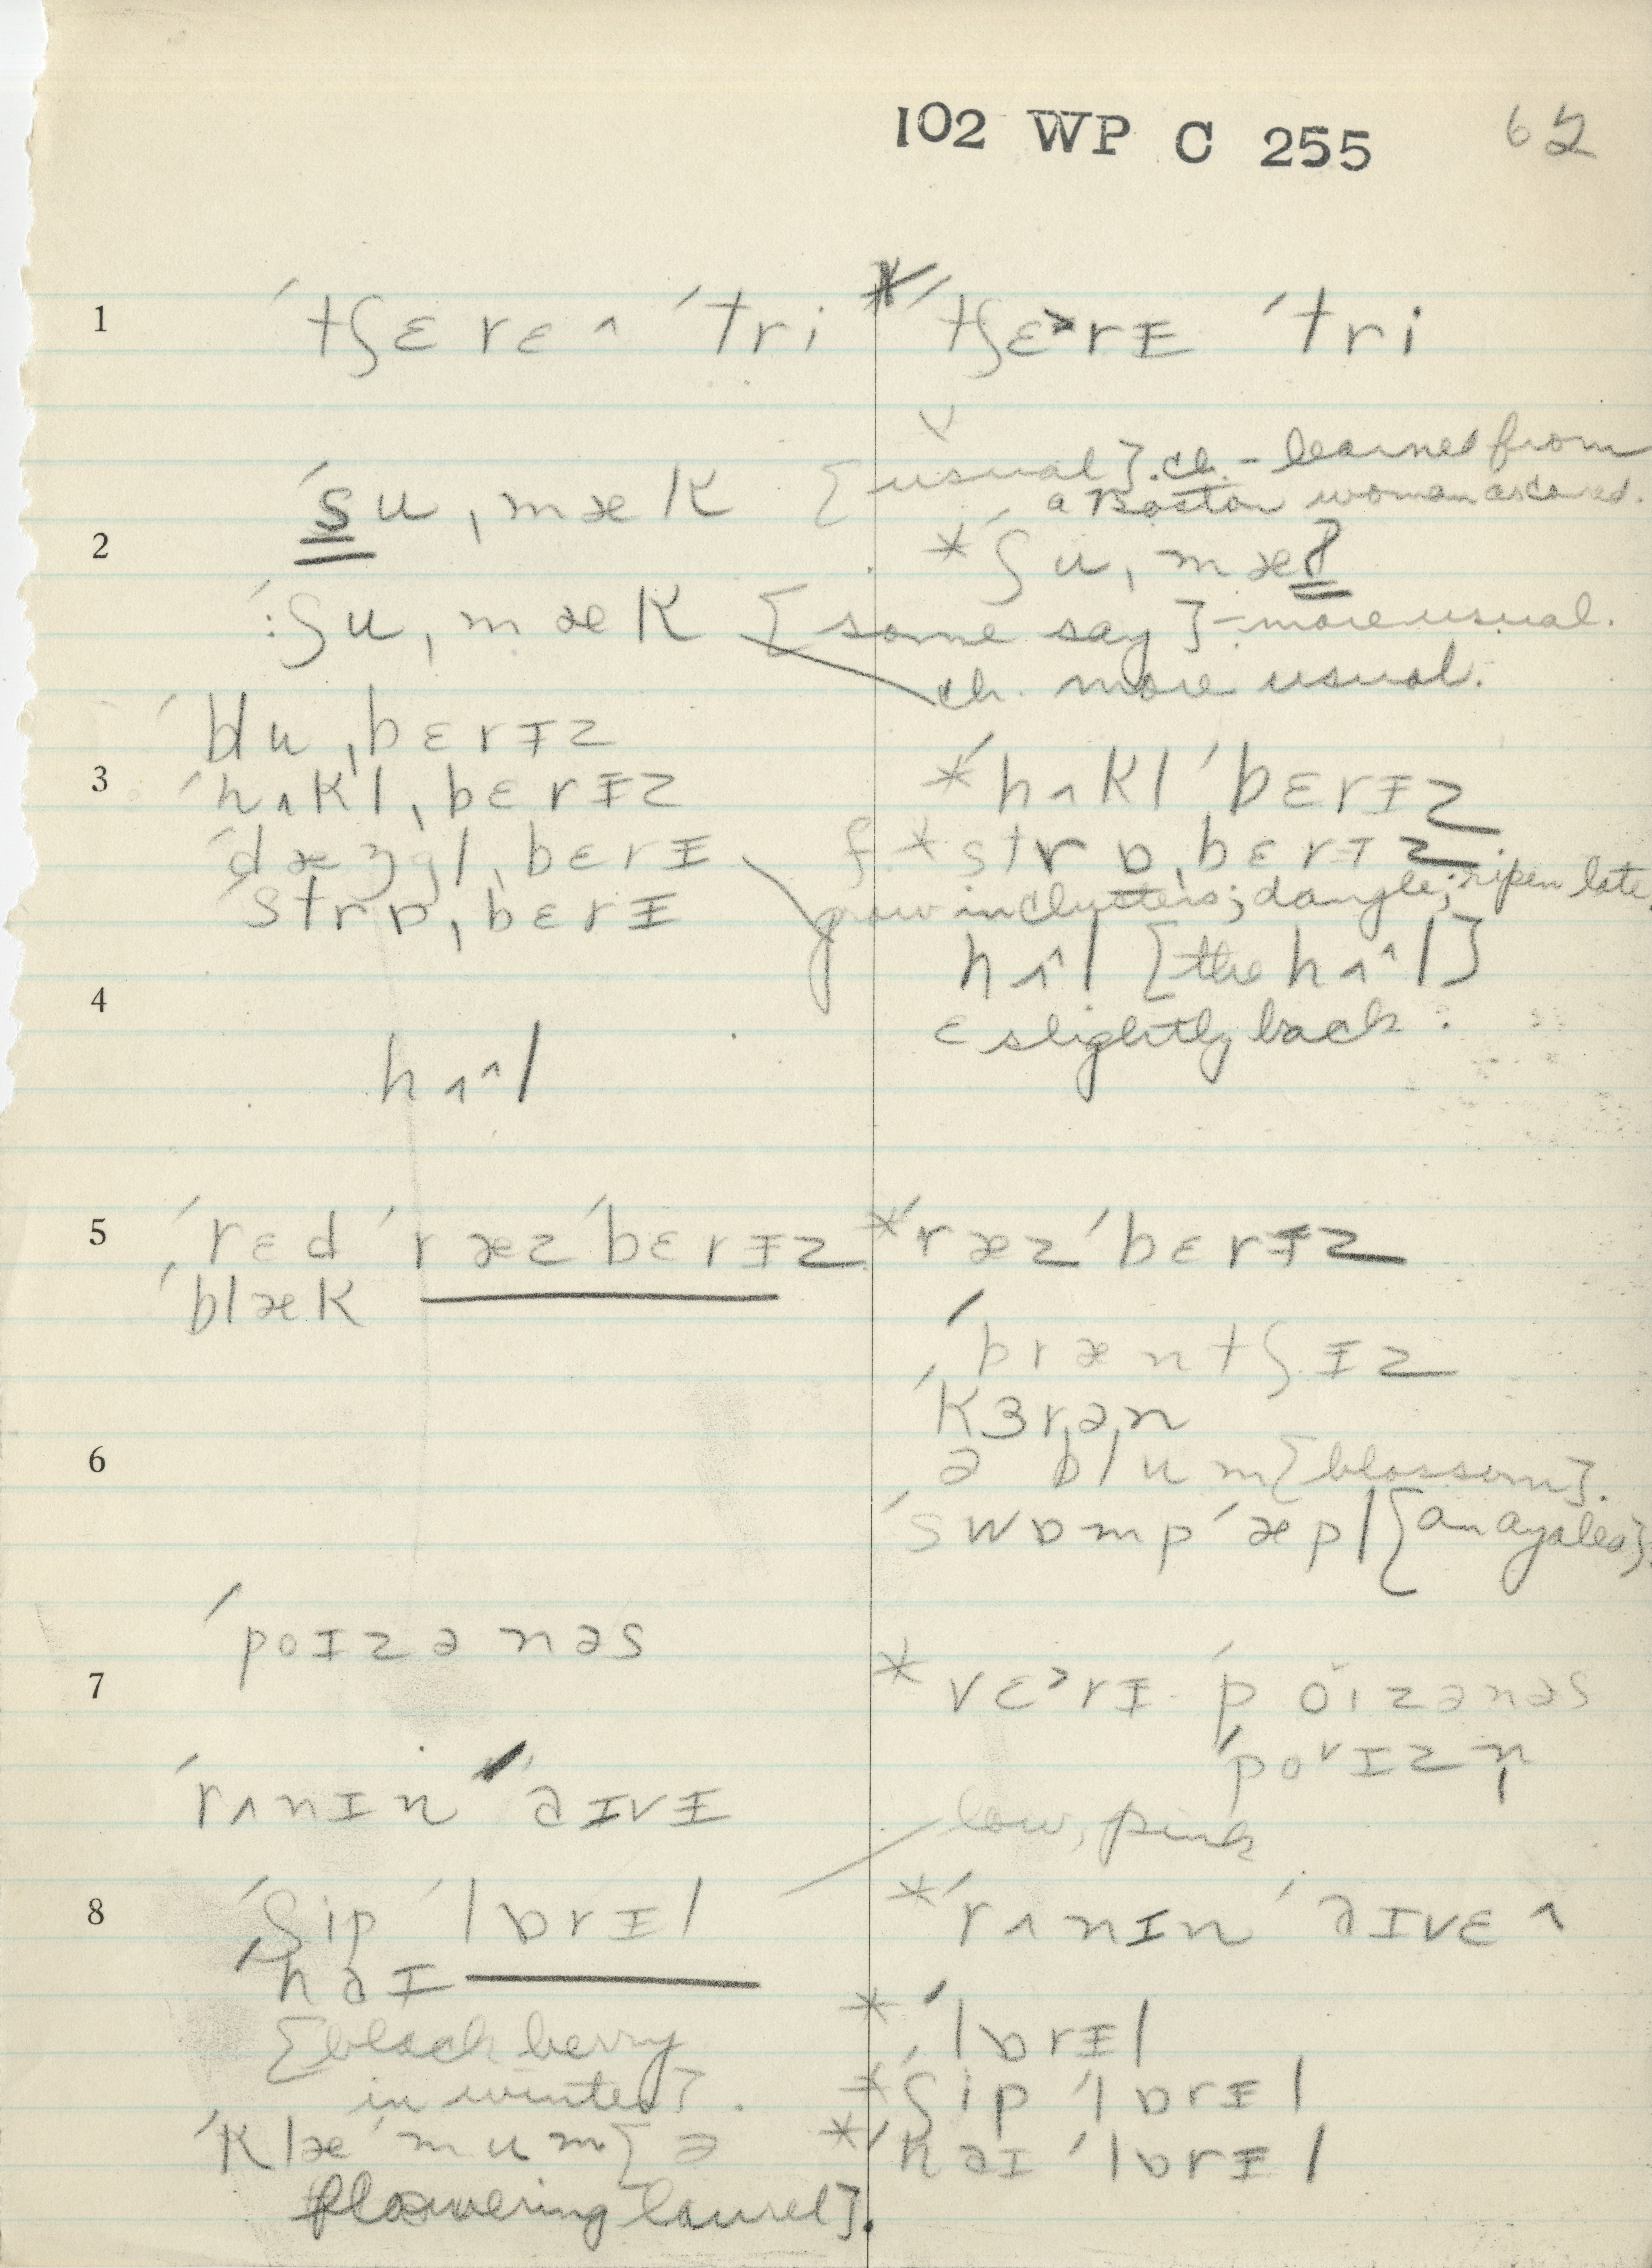 102 WP C 255 62
1 ˈtʃɛrɛ^ ˈtri * ˈtʃɛ>rɪ ˈtri
ˈsuˌmæk [usual]. ch. - learned from
a Boston woman
2 * ˈʃuˌmæ
ˈ:ʃuˌmæk [some say] - more usual.
ch. more usual.
ˈbluˌbɛrɪz
3 ˈhʌklˌbɛrɪz * ˈhʌklˈbɛrɪz
ˈdæŋglˌbɛrɪ f. * strɒˌbɛrɪz.
ˈstrɒˌbɛrɪ grow in clusters; dangle; ripen late,
hʌ^l [the hʌ^l]
4 ɛ slightly back.
hʌ^l
5 ˈrɛd ˈræzˈbɛrɪz * ˈræzˈbɛrɪz
ˈblæk
ˈbræntʃɪz
ˈkɜrˌəˌn
6 ə blum [blossom].
ˈswɒmpˈæpl [an azalea].
ˈpoɪzənəs
7 * vɛ>rɪ ˈpŏɪzənəs
ˈpo˅ɪzn̩
ˈrʌnɪn ˈaɪvɪ
low, pink
8 ˈʃip ˈlɒrɪl * ˈrʌnɪn ˈaɪvɛ^
ˈhaɪ
* ˈlɒrɪl
[black berry
in winter]. * ˈʃip ˈlɒrɪl
ˈklæˈmum [a * ˈhaɪ ˈlɒrɪl
flowering laurel].